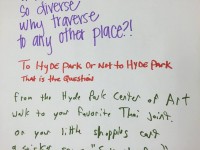 so diverse
why traverse
to any other place?!
To Hyde Park Or Not to Hyde Park
That is the Question
From the Hyde Park Center of Art
walk to your favorite Thai Joint.
on your little shopples cart